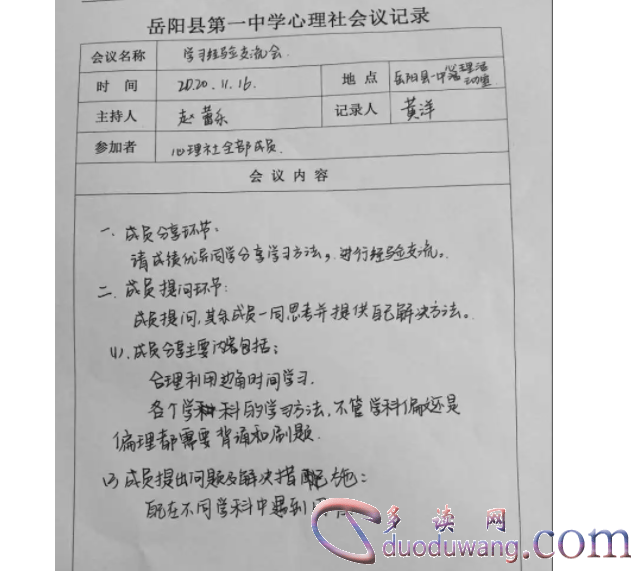 岳阳县第一中学心理社会议记录
会议名称 学习经验交流会
时 间 2020.11.16 地 点 岳阳县一中心理活动室
主持人 赵 记录人 黄洋
参加者 心理社全部成员.
会 议 内 容
一、成员分享环节:
请成绩优异同学分享学习方法,进行经验交流。
二、成员提问环节:
成员提问,其余成员一同思考并提供自己解决方法。
(1).成员分享主要内容包括:
合理利用边角时间学习.
各个学科的学习方法,不管学科偏文还是
偏理都需要背诵和刷题.
(2)成员提出问题及解决措施:
在不同学科中遇到
多读网
duoduwang.com